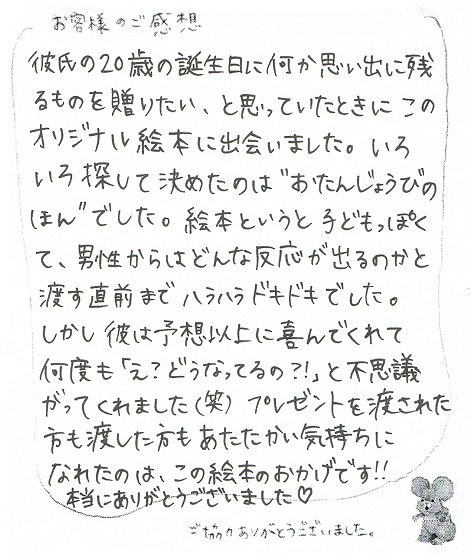 お客様のご感想
彼氏の20歳の誕生日に何か思い出に残
るものを贈りたい、と思っていたときに この
オリジナル絵本に出会いました。いろ
いろ探して決めたのは“おたんじょうびの
ほん”でした。絵本というと子どもっぽく
て、男性からはどんな反応が出るのかと
渡す直前まで ハラハラドキドキでした。
しかし 彼は予想以上に喜んでくれて
何度も「え？どうなってるの？！」と不思議
がってくれました（笑） プレゼントを渡された
方も渡した方もあたたかい気持ちに
なれたのは、この絵本のおかげです！！
本当にありがとうございました♡
ご協力ありがとうございました。